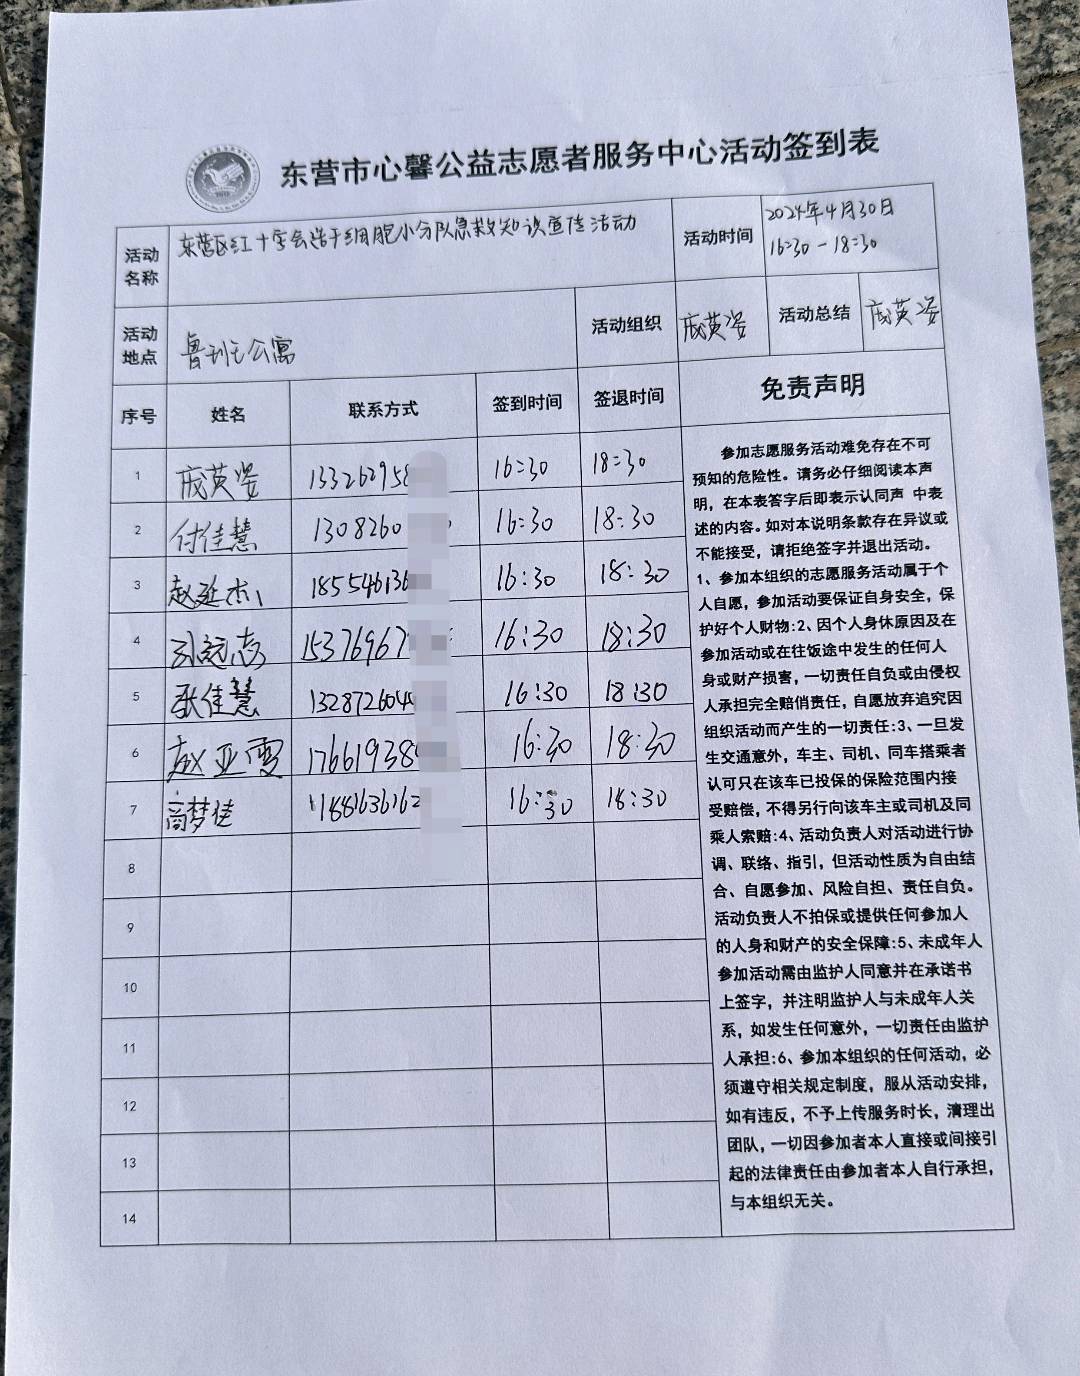 东营市心馨公益志愿者服务中心活动签到表
活动名称 东营区红十字会造干细胞小分队急救知识宣传活动 活动时间 2024年4月30日
16:30-18:30
活动地点 鲁班公寓 活动组织 成英姿 活动总结 成英姿
序号 姓名 联系方式 签到时间 签退时间 免责声明
1 成英姿 133262958 16:30 18:30
2 付佳慧 1308260 16:30 18:30
3 赵延杰 185546136 16:30 18:30
4 孙远志 15376967 16:30 18:30
5 张佳慧 132872604 16:30 18:30
6 赵亚雪 17661938 16:30 18:30
7 高梦佳 1881636162 16:30 18:30
8
9
10
11
12
13
14
参加志愿服务活动难免存在不可
预知的危险性。请务必仔细阅读本声
明，在本表答字后即表示认同声 中表
述的内容。如对本说明条款存在异议或
不能接受，请拒绝签字并退出活动。
1、参加本组织的志愿服务活动属于个
人自愿，参加活动要保证自身安全，保
护好个人财物:2、因个人身休原因及在
参加活动或在往饭途中发生的任何人
身或财产损害，一切责任自负或由侵权
人承担完全赔俏责任，自愿放弃追究因
组织活动而产生的一切责任:3、一旦发
生交通意外，车主、司机、同车搭乘者
认可只在该车已投保的保险范围内接
受赔偿，不得另行向该车主或司机及同
乘人索赔:4、活动负责人对活动进行协
调、联络、指引，但活动性质为自由结
合、自愿参加、风险自担、责任自负。
活动负责人不拍保或提供任何参加人
的人身和财产的安全保障:5、未成年人
参加活动需由监护人同意并在承诺书
上签字，并注明监护人与未成年人关
系，如发生任何意外，一切责任由监护
人承担:6、参加本组织的任何活动，必
须遵守相关规定制度，服从活动安排，
如有违反，不予上传服务时长，清理出
团队，一切因参加者本人直接或间接引
起的法律责任由参加者本人自行承担，
与本组织无关。